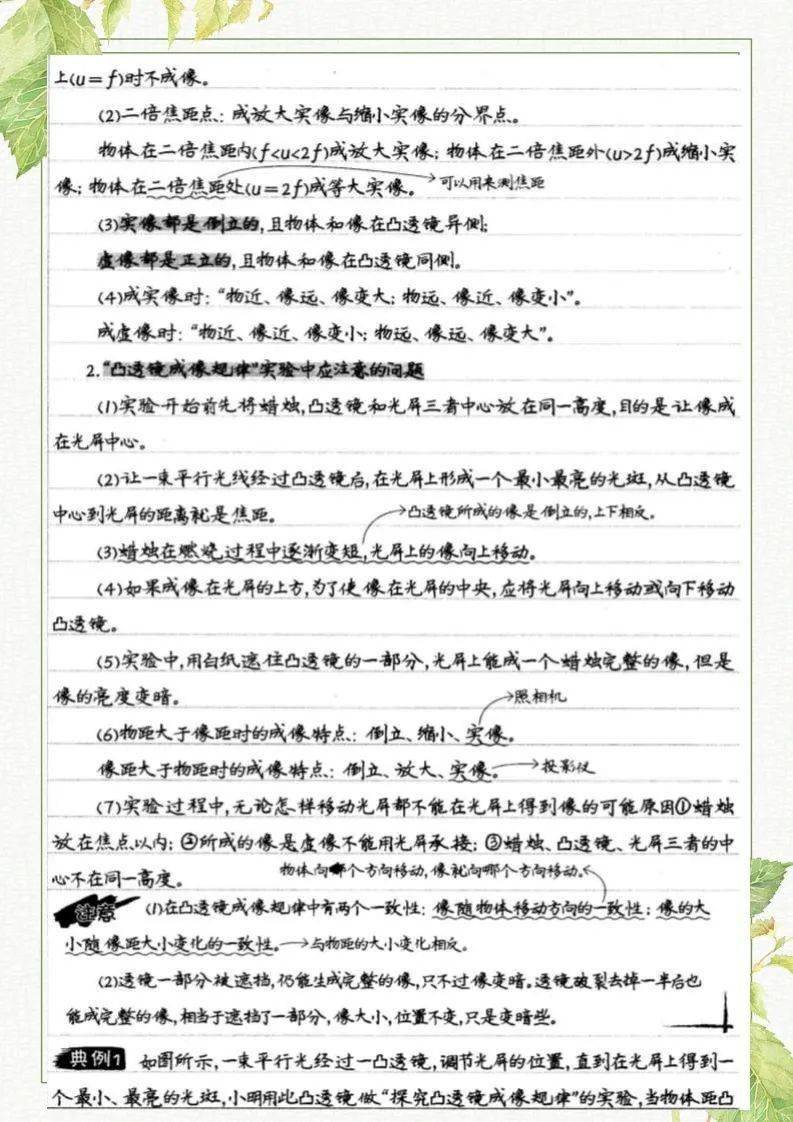 上(u=f)时不成像。
(2)二倍焦距点:成放大实像与缩小实像的分界点。
物体在二倍焦距内(f<u<2f)成放大实像;物体在二倍焦距外(u>2f)成缩小实
像;物体在二倍焦距处(u=2f)成等大实像。 可以用来测焦距
(3)实像都是倒立的,且物体和像在凸透镜异侧;
虚像都是正立的,且物体和像在凸透镜同侧。
(4)成实像时:“物近、像远、像变大;物远、像近、像变小”。
成虚像时:“物近、像近、像变小;物远、像远、像变大”。
2.“凸透镜成像规律”实验中应注意的问题
(1)实验开始前先将蜡烛,凸透镜和光屏三者中心放在同一高度,目的是让像成
在光屏中心。
(2)让一束平行光线经过凸透镜后,在光屏上形成一个最小最亮的光斑,从凸透镜
中心到光屏的距离就是焦距。 凸透镜所成的像是倒立的,上下相反。
(3)蜡烛在燃烧过程中逐渐变短,光屏上的像向上移动。
(4)如果成像在光屏的上方,为了使像在光屏的中央,应将光屏向上移动或向下移动
凸透镜。
(5)实验中,用白纸遮住凸透镜的一部分,光屏上能成一个蜡烛完整的像,但是
像的亮度变暗。 照相机
(6)物距大于像距时的成像特点:倒立、缩小、实像。
像距大于物距时的成像特点:倒立、放大、实像。 投影仪
(7)实验过程中,无论怎样移动光屏都不能在光屏上得到像的可能原因①蜡烛
放在焦点以内;②所成的像是虚像不能用光屏承接;③蜡烛、凸透镜、光屏三者的中
心不在同一高度。 物体向哪个方向移动,像就向哪个方向移动。
注意 (1)在凸透镜成像规律中有两个一致性:像随物体移动方向的一致性;像的大
小随像距大小变化的一致性。 与物距的大小变化相反。
(2)透镜一部分被遮挡,仍能生成完整的像,只不过像变暗。透镜破裂去掉一半后也
能成完整的像,相当于遮挡了一部分,像大小,位置不变,只是变暗些。
典例1 如图所示,一束平行光经过一凸透镜,调节光屏的位置,直到在光屏上得到一
个最小、最亮的光斑,小明用此凸透镜做“探究凸透镜成像规律”的实验,当物体距凸